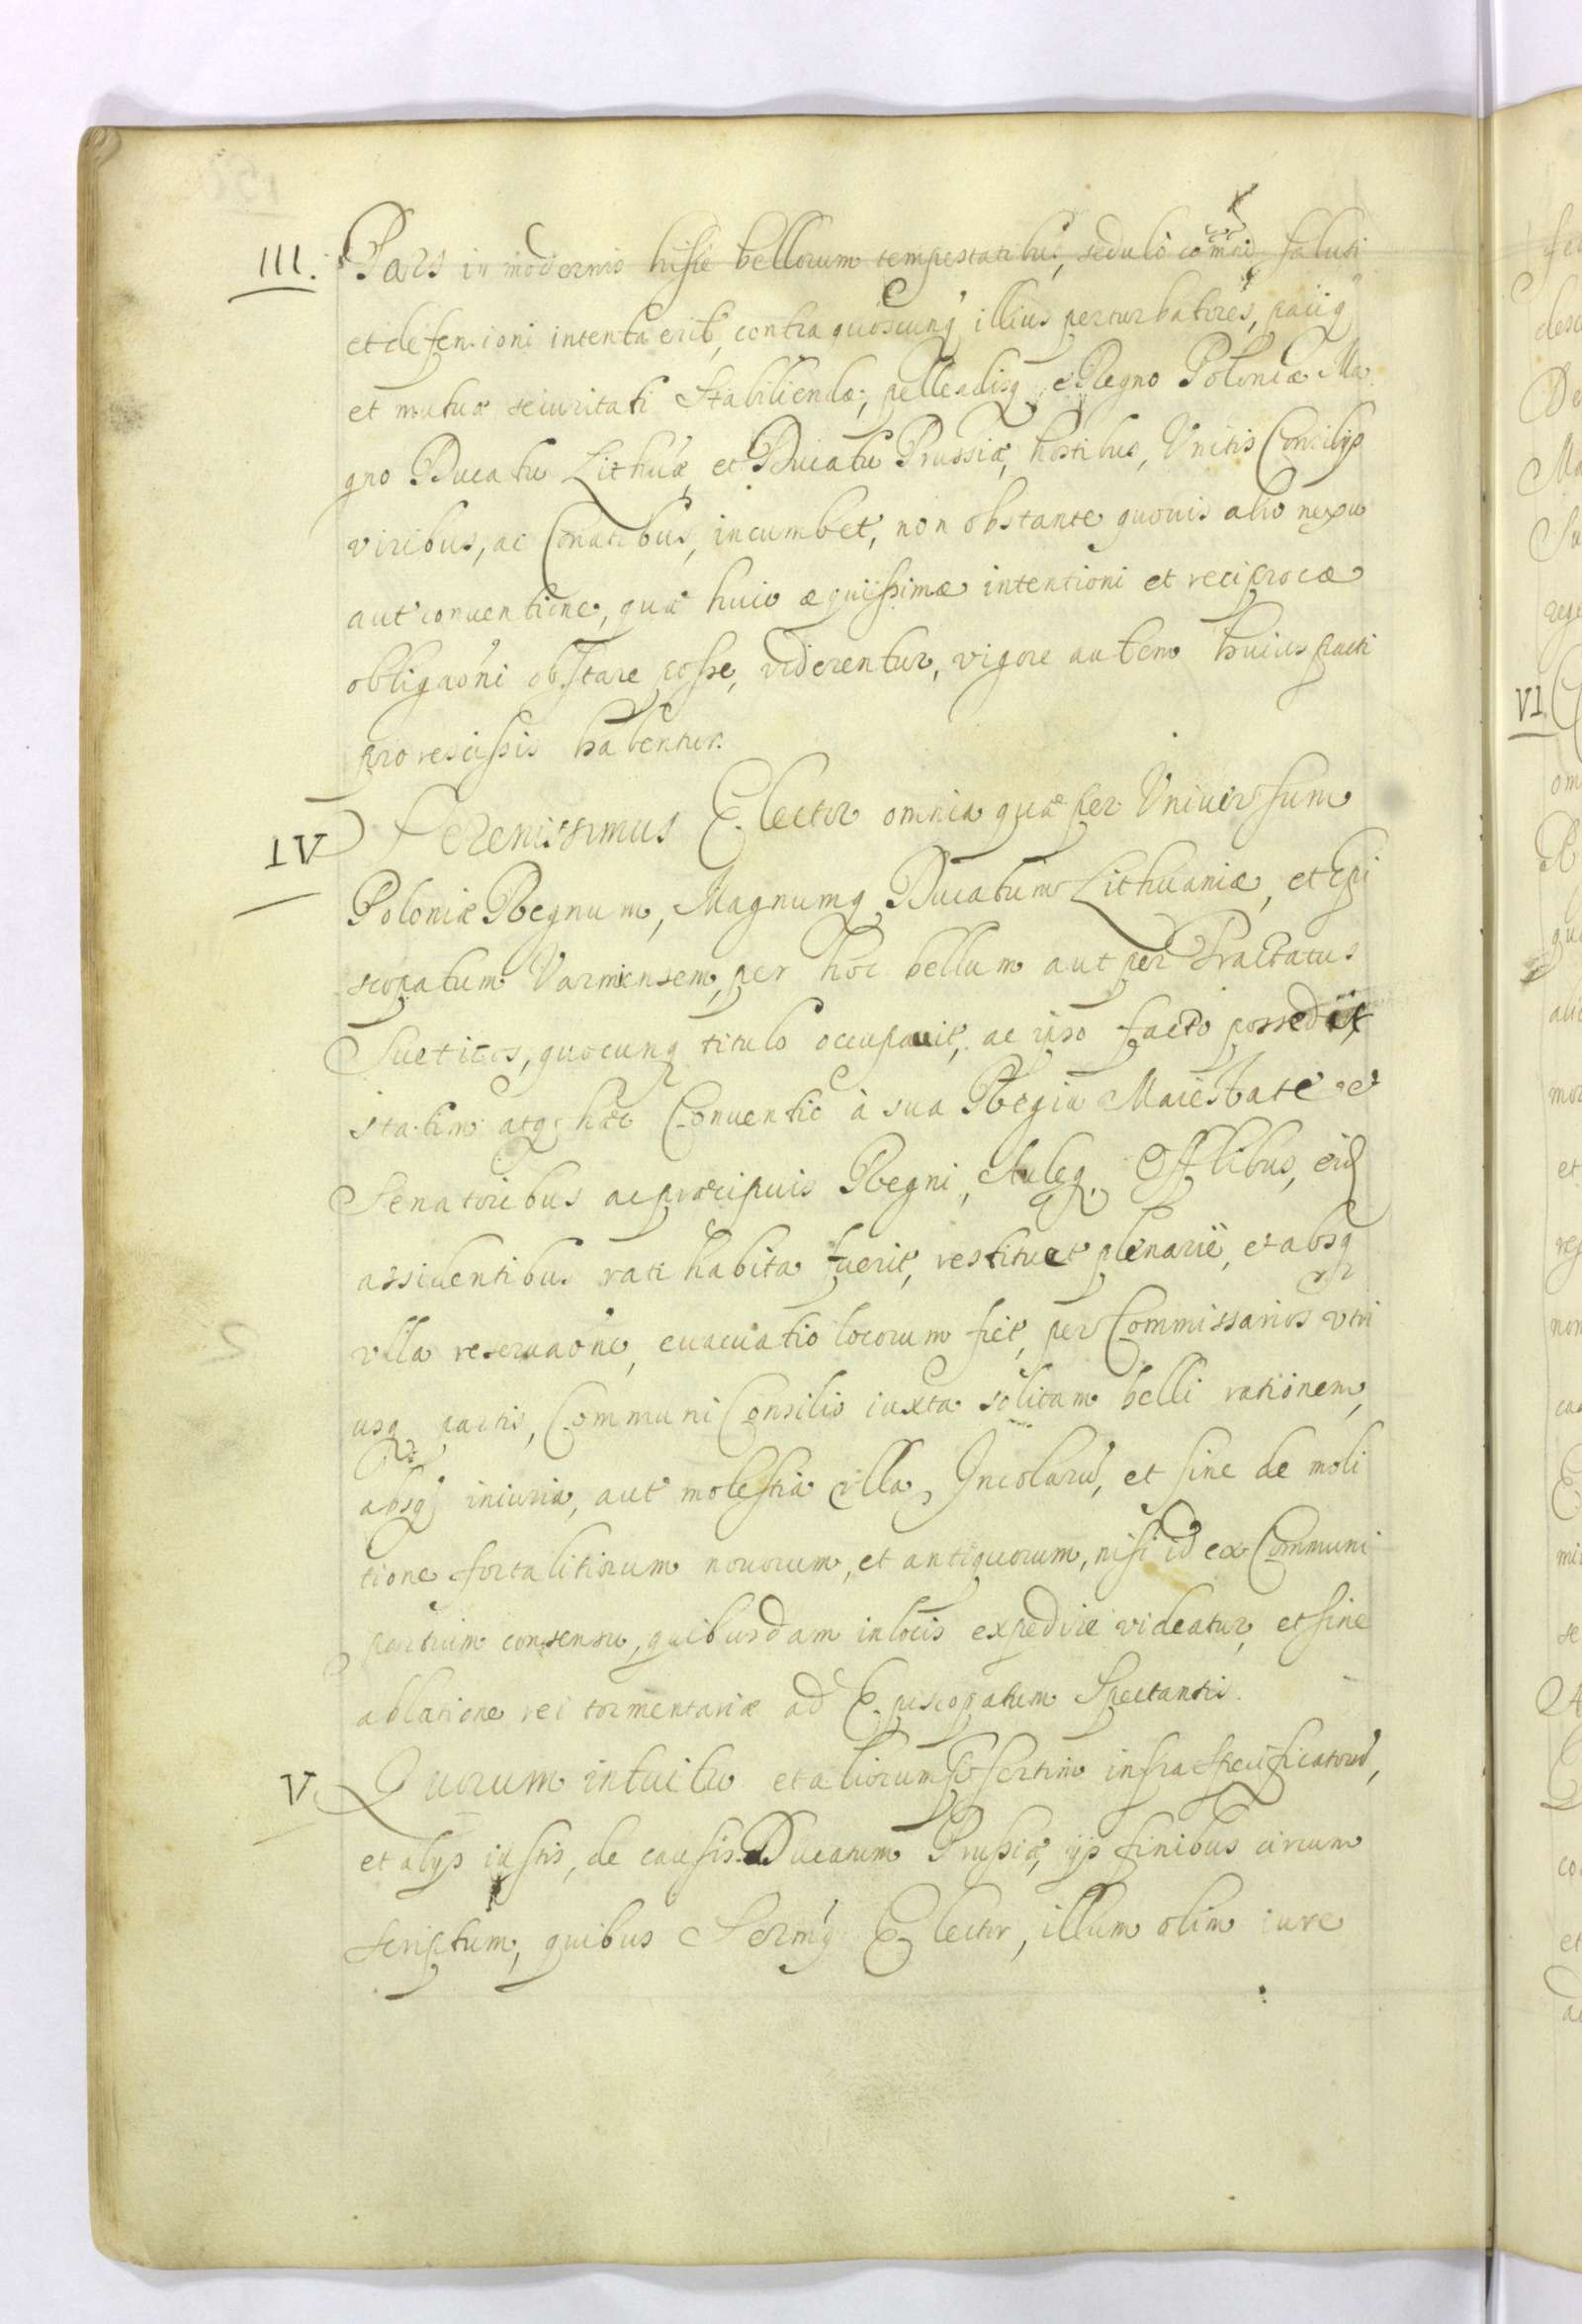 III. Pars in modernis hisce bellorum tempestatibus, sedulò com̃ni saluti
et defensioni intenta erit, contra quoscunq illius perturbatores, paciq
et mutuæ securitati stabiliendæ, pellendisq e Regno Poloniæ Ma
gno Ducatu Lithuæ, et Ducatu Prussiæ, hostibus, Unitis Consilijs
viribus, ac Conatibus, incumbet, non obstante quouis alio nexu
aut conuentione, quæ huic æquissimæ intentioni et reciprocæ
obligaõni obstare posse, viderentur, vigore autem huius pacti
pro rescissis habentur.
IV Serenissimus Elector omnia quæ per Uniuersum
Poloniæ Regnum, Magnumq Ducatum Lithuaniæ, et Epi
scopatum Varmiensem, per hoc bellum aut per Tractatus
Sueticos, quocunq titulo occupauit, ac ipso facto possedit
statim atq hæc Conuentio à sua Regia Maiestate et
Senatoribus ac præcipuis Regni, Aulæq. Offlibus, eid
assidentibus rati habita fuerit, restituet plenariè, et absq
vlla reseruaõne, euacuatio locorum fiet, per Commissarios vtri
usq partis, Communi Consilio iuxta solitam belli rationem,
absq iniuria, aut molestia vlla, Incolarũ, et sine de moli
tione fortalitiorum nouorum, et antiquorum, nisi id ex Communi
partium consensu, quibusdam in locis expedire videatur, et sine
ablatione rei tormentariæ ad Episcopatum Spectantis.
V. Quorum intuitu et aliorum præsertim infra specificatorũ,
et alijs iustis, de causis Ducatum Prussiæ, ijs finibus circum
scriptum, quibus Sermq Elector, illum olim iure